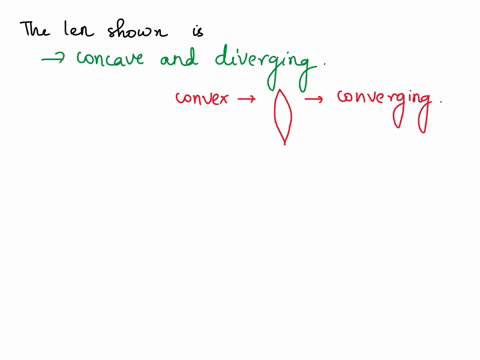 The len shown is
→ concave and diverging.
convex → → converging.